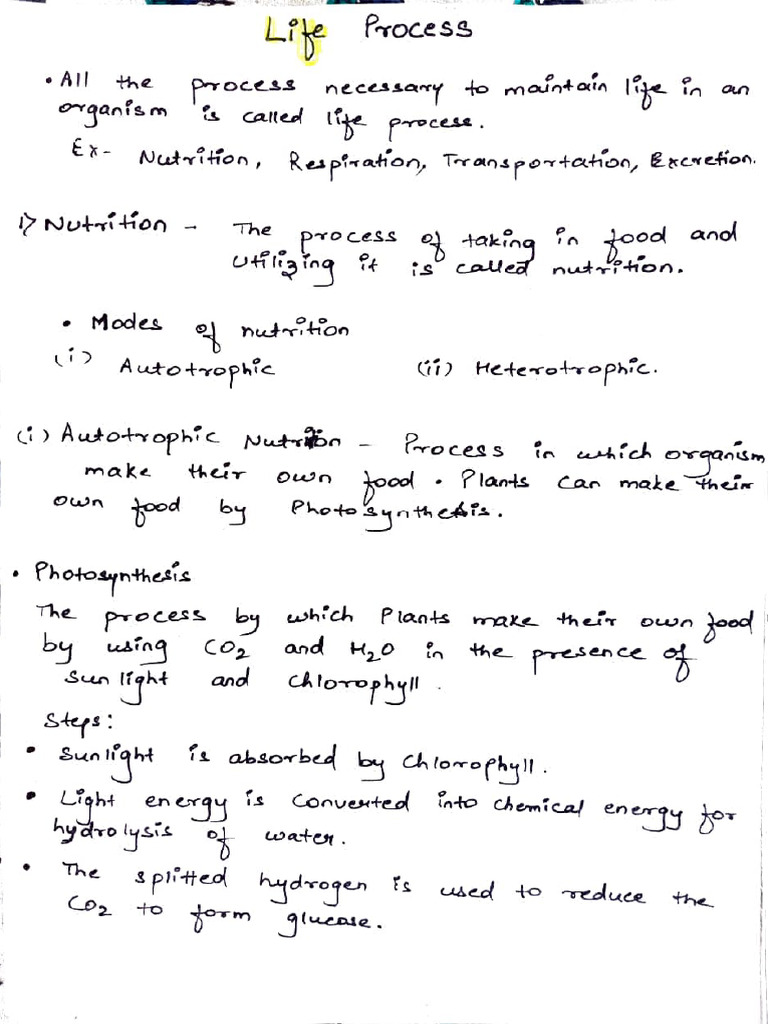 Life Process
• All the process necessary to maintain life in an
organism is called life process.
Ex- Nutrition, Respiration, Transportation, Excretion.
1) Nutrition - The process of taking in food and
utilizing it is called nutrition.
• Modes of nutrition
(i) Autotrophic (ii) Heterotrophic.
(i) Autotrophic Nutrition - Process in which organism
make their own food. Plants can make their
own food by Photosynthesis.
• Photosynthesis
The process by which Plants make their own food
by using CO2 and H2O in the presence of
Sunlight and Chlorophyll.
Steps:
• Sunlight is absorbed by Chlorophyll.
• Light energy is converted into chemical energy for
hydrolysis of water.
• The splitted hydrogen is used to reduce the
CO2 to form glucose.